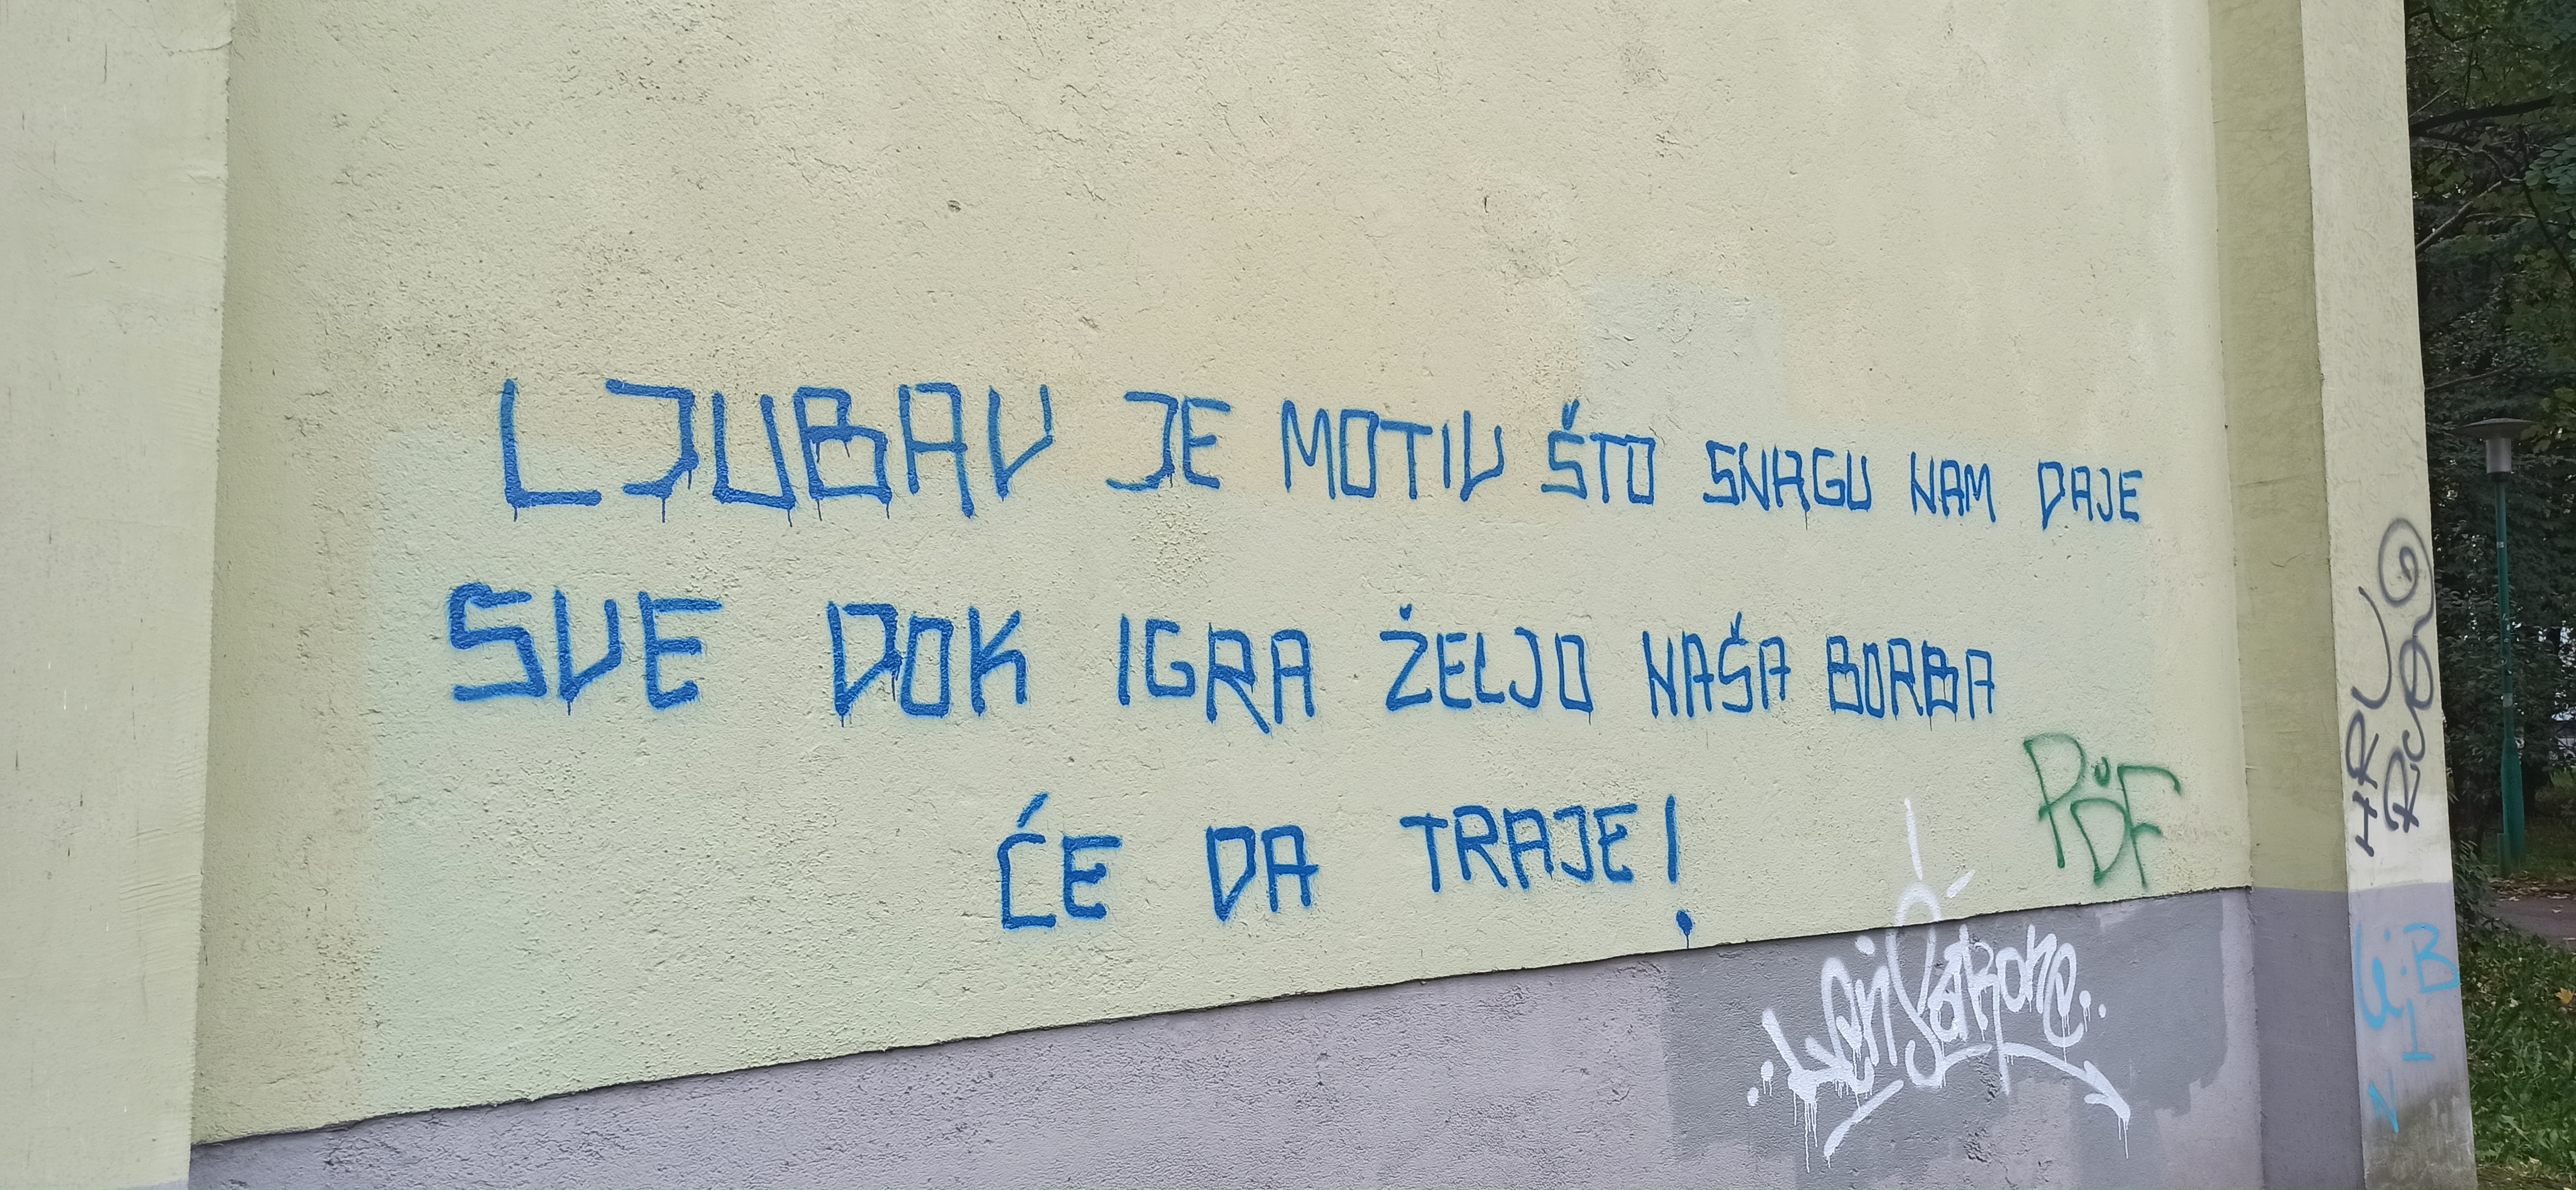 LJUBAV JE MOTIV ŠTO SNAGU NAM DAJE
SVE DOK IGRA ŽELJO NAŠA BORBA
ĆE DA TRAJE!
PDF